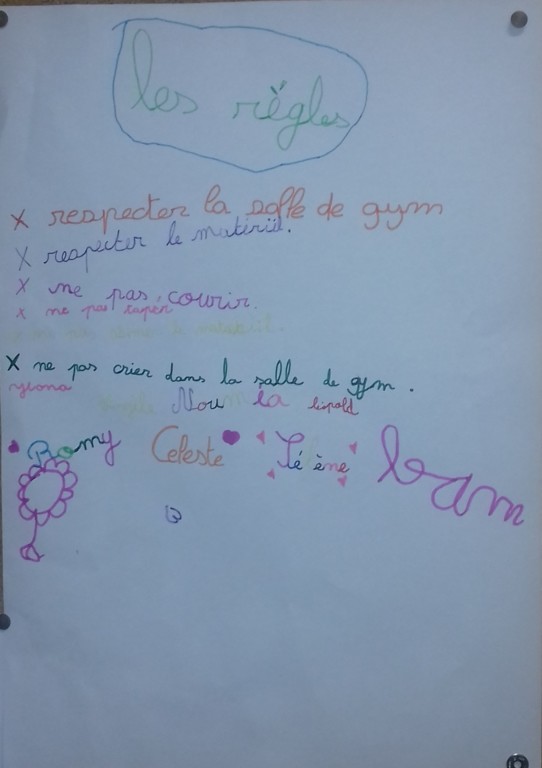 les règles
X respecter la salle de gym
X respecter le materiel.
X ne pas courir.
x ne pas taper
X ne pas crier dans la salle de gym.
leopold
Romy Celeste
bam
B